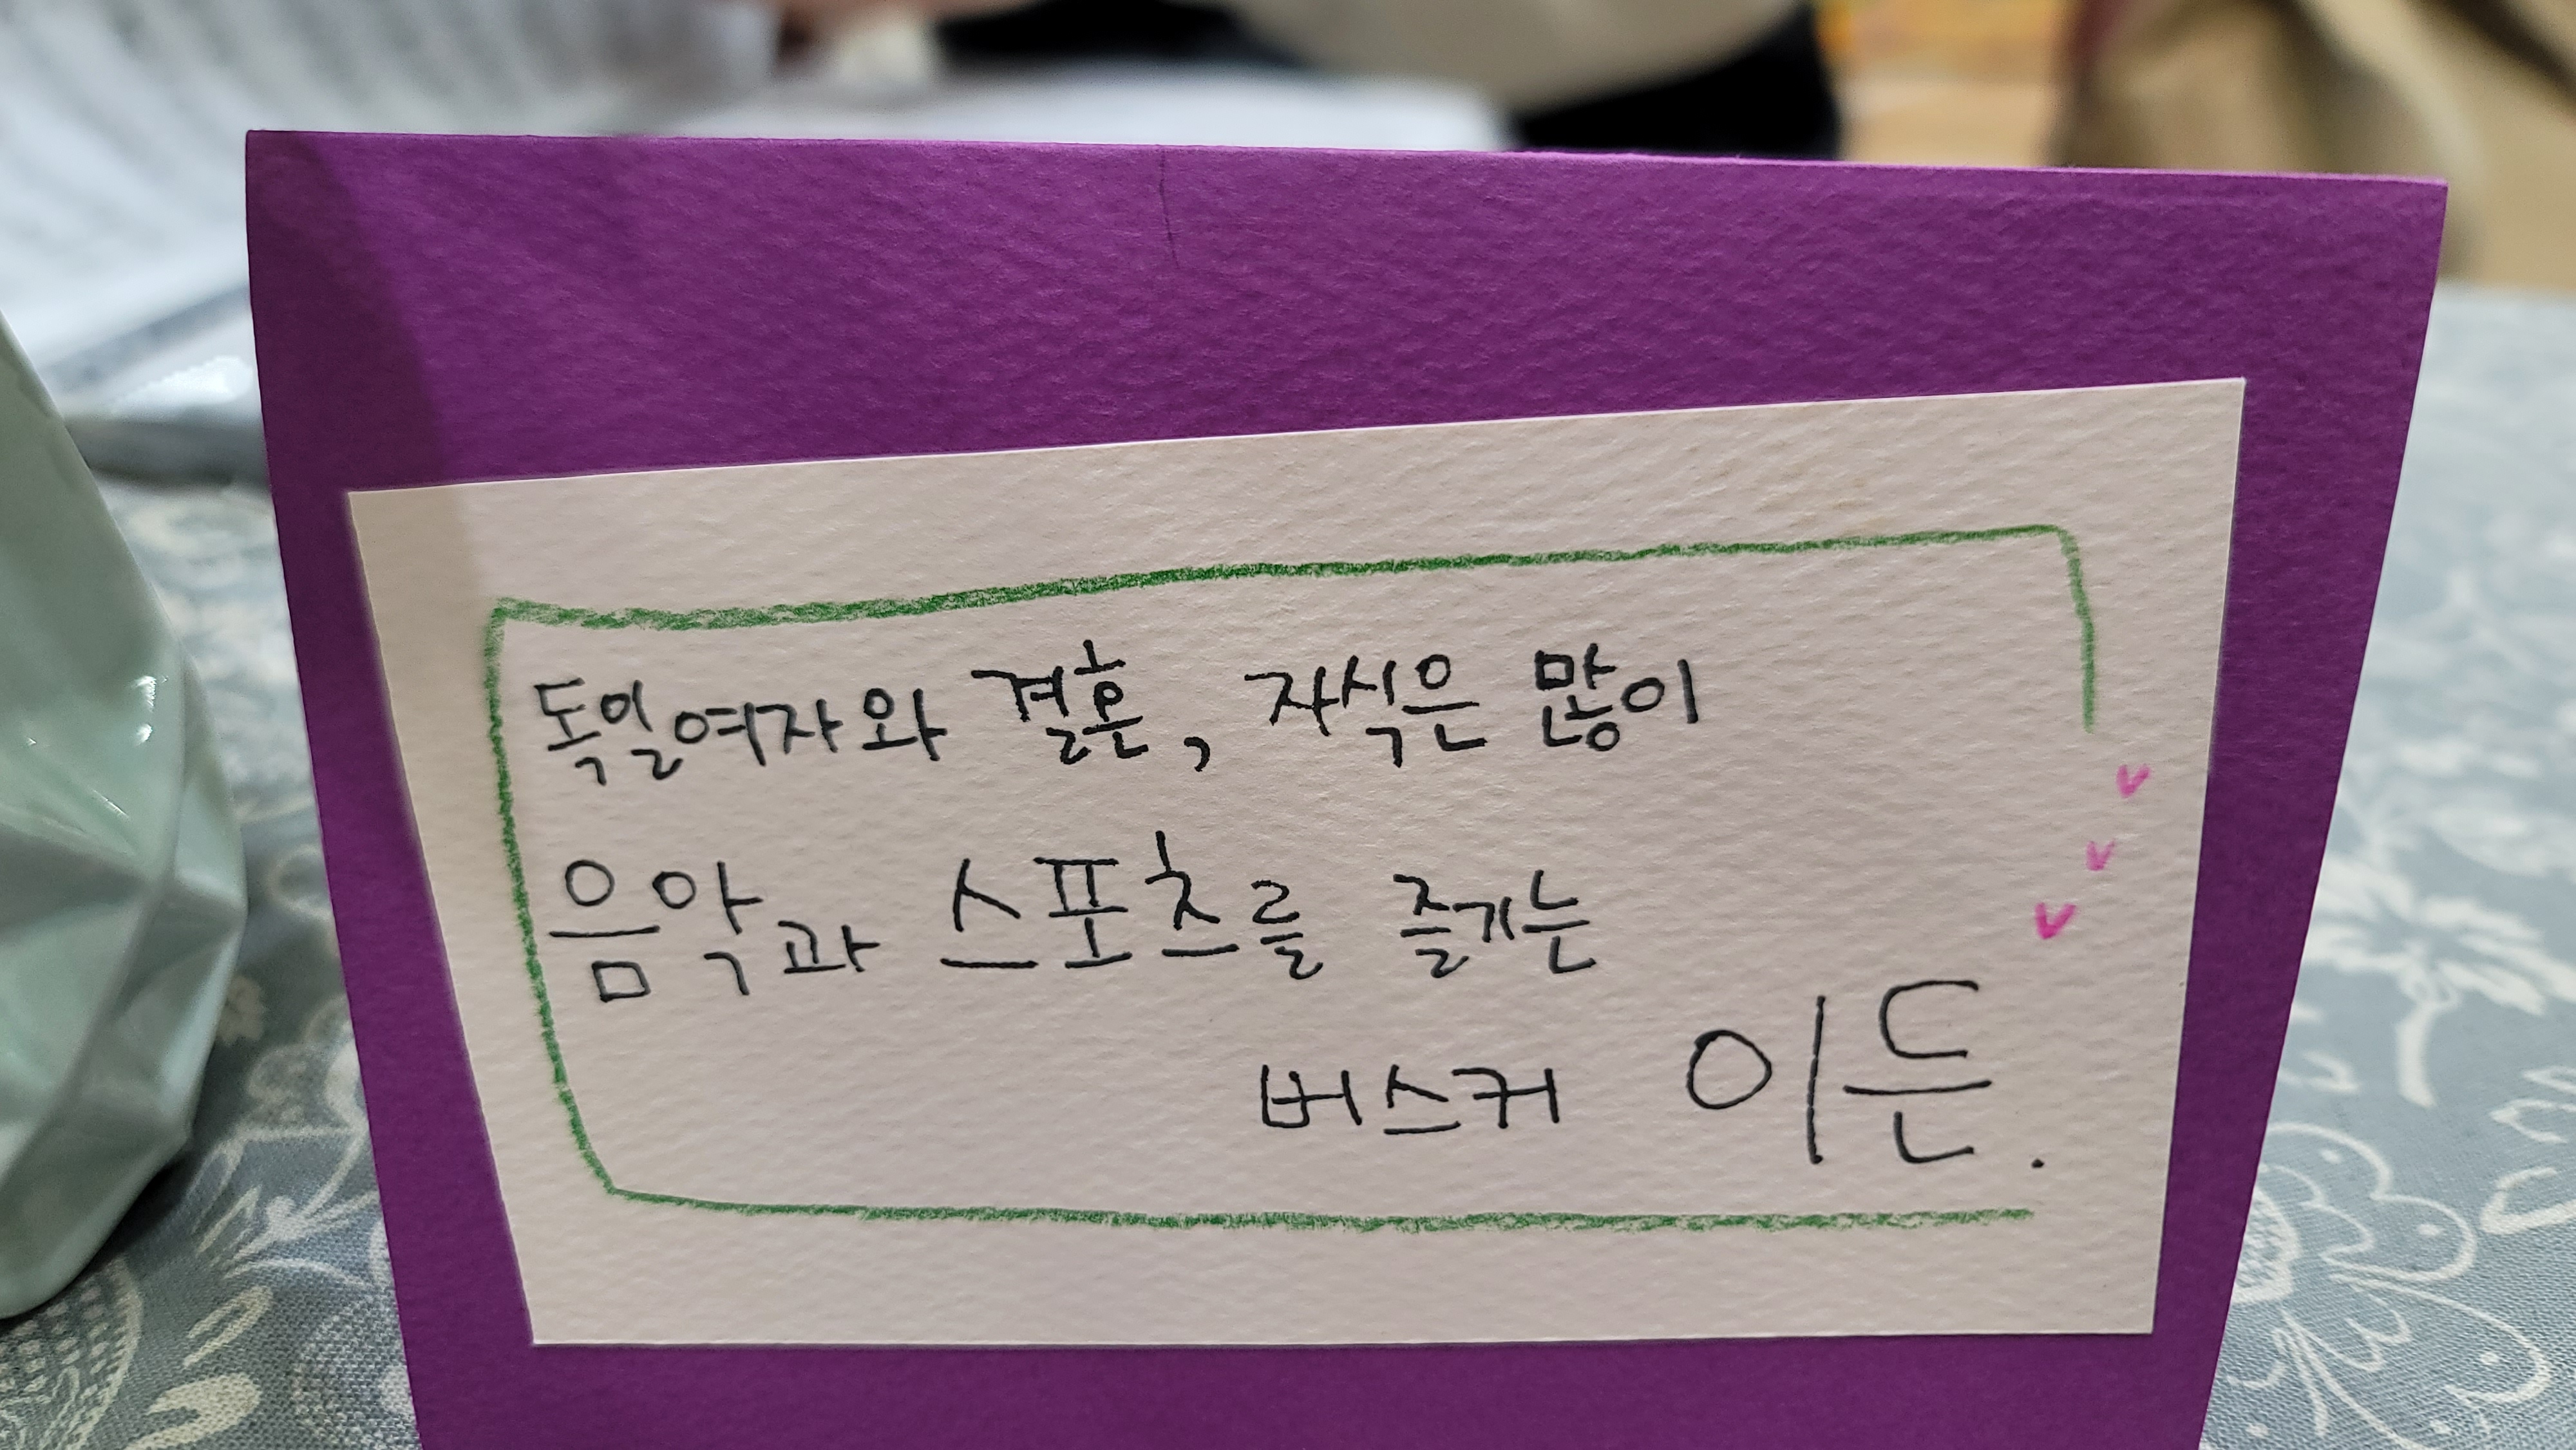 독일여자와 결혼, 자식은 많이
음악과 스포츠를 즐기는
버스커 이든.